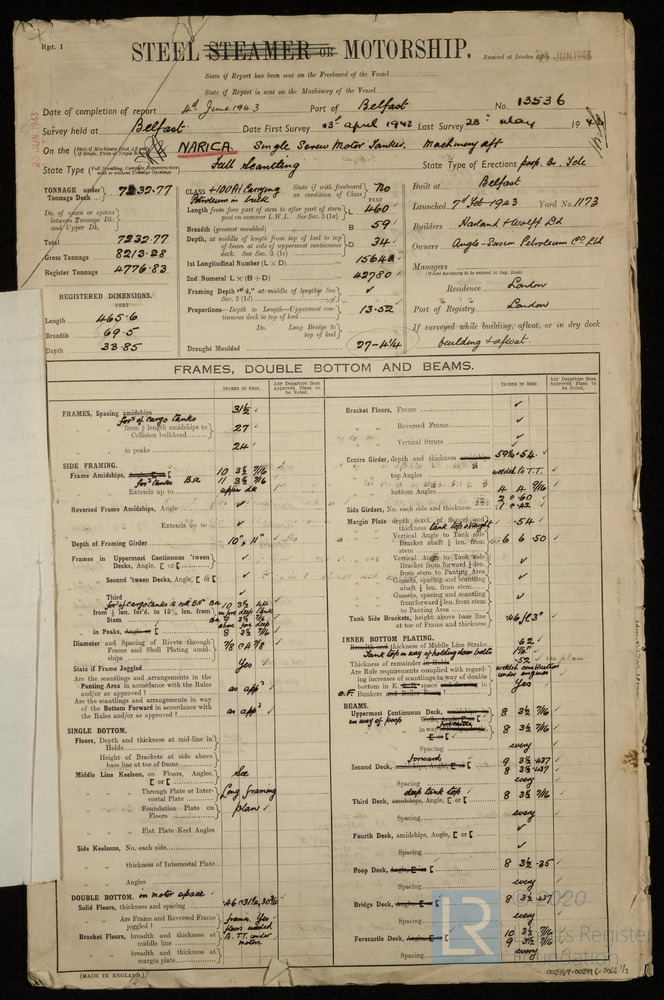 Rpt. 1
STEEL STEAMER OR MOTORSHIP.
Received at London Office
JUN 1943
State if Report has been sent on the Freeboard of the Vessel
State if Report is sent on the Machinery of the Vessel
Date of completion of report 4th June 1943 Port of Belfast No. 13536
Survey held at Belfast Date First Survey 13th April 1942 Last Survey 28th May 19
On the NARICA. Single Screw Motor Tanker. Machinery aft
State Type Full Scantling State Type of Erections poop. Br. Fcle
TONNAGE under Tonnage Deck 7232.77
Do. of space or spaces between Tonnage Dk. and Upper Dk.
Total 7232.77
Gross Tonnage 8213.28
Register Tonnage 4776.83
REGISTERED DIMENSIONS.
FEET
Length 465.6
Breadth 69.5
Depth 33.85
CLASS +100A1 Carrying Petroleum in bulk
State if with freeboard as condition of Class No
FEET
Length from fore part of stem to after part of stern post on summer L.W.L. See Sec. 3 (1a) L 460
Breadth (greatest moulded) B 59
Depth, at middle of length from top of keel to top of beam at side of uppermost continuous deck. See Sec. 3 (1c) D 34
1st Longitudinal Number (L × D) 15640
2nd Numeral L × (B + D) 42780
Framing Depth "d," at middle of length. See Sec. 3 (1d) ✓
Proportions—Depth to Length—Uppermost continuous deck to top of keel 13.52
Do. Long Bridge to top of keel
Draught Moulded 27-4¼
Built at Belfast
Launched 7th Feb 1943 Yard No. 1173
Builders Harland & Wolff Ltd
Owners Anglo-Saxon Petroleum Co Ltd
Managers
(Where necessary to be entered in Reg. Book)
Residence London
Port of Registry London
If surveyed while building, afloat, or in dry dock
building & afloat.
FRAMES, DOUBLE BOTTOM AND BEAMS.
INCHES IN SHIP.
Any Departure from Approved Plans to be Noted.
INCHES IN SHIP.
Any Departure from Approved Plans to be Noted.
FRAMES, Spacing amidships 31½ ✓
for'd of cargo tanks
from ⅕ length amidships to Collision bulkhead 27 ✓
in peaks 24 ✓
SIDE FRAMING.
Frame Amidships, 10 3½ 7/16
for'd tanks Ba 11 3½ 7/16
Extends up to upper dk
Reversed Frame Amidships, Angle ✓
Extends up to ✓
Depth of Framing Girder 10", 11" ✓
Frames in Uppermost Continuous 'tween Decks, Angle, [ or [ ✓
Second 'tween Decks, Angle, [ or [ ✓
Third
from ⅕ len. for'd. to 15% len. from Stem
in Peaks, 8 3½ 7/16
Diameter and Spacing of Rivets through Frame and Shell Plating amidships
State if Frame Joggled Yes
Are the scantlings and arrangements in the Panting Area in accordance with the Rules and/or as approved ? as app'd
Are the scantlings and arrangements in way of the Bottom Forward in accordance with the Rules and/or as approved ? as app'd
SINGLE BOTTOM.
Floors, Depth and thickness at mid-line in Holds
Height of Brackets at side above base line at toe of frame
Middle Line Keelson, on Floors, Angles, [ or [ See
Through Plate or Intercostal Plate Long framing
Foundation Plate on Floors plan ✓
Flat Plate Keel Angles
Side Keelsons, No. each side
thickness of Intercostal Plate
Angles
DOUBLE BOTTOM. in motor space
Solid Floors, thickness and spacing
Are Frame and Reversed Frame joggled ? frames Yes
Bracket Floors, breadth and thickness at middle line
breadth and thickness at margin plate
floors welded to T.T. under motor.
Bracket Floors, Frame ✓
Reversed Frame ✓
Vertical Struts ✓
Centre Girder, depth and thickness
top Angles welded to T.T.
bottom Angles 4 4 9/16
Side Girders, No. each side and thickness
Margin Plate depth (excl. of flange) and thickness tank top straight .54
Vertical Angle to Tank side Bracket abaft ⅕ len. from stem 6 6 .50
Vertical Angle to Tank side Bracket from forward ⅕ len. from stem to Panting Area ✓
Gussets, spacing and scantling abaft ⅕ len. from stem ✓
Gussets, spacing and scantling from forward ⅕ len. from stem to Panting Area ✓
Tank Side Brackets, height above base line at toe of Frame and thickness
INNER BOTTOM PLATING.
Breadth and thickness of Middle Line Strake .62
Tank top in way of holding down bolts 1⅛"
Thickness of remainder in Holds .52 see plan
Are Rule requirements complied with regarding increases of scantling in way of double bottom in E. & B. space and Bunkers and Boiler Room ? Yes
welded construction under engines
BEAMS.
Uppermost Continuous Deck, 8 3½ 7/16
in way of poop 8 3½ 7/16
Spacing every
Forward
Second Deck, 9 3½ .437
8 3½ .437
Spacing every
deep tank top
Third Deck, amidships, Angle, [ or [ 8 3½ 7/16
Spacing every
Fourth Deck, amidships, Angle, [ or [ ✓
Spacing ✓
Poop Deck, 8 3½ .35
Spacing every
Bridge Deck, 8 3½ .437
Spacing every
Forecastle Deck, 10 3½ 7/16
9 3½ 7/16
Spacing every
(MADE IN ENGLAND.)
LR
2020
Lloyd's Register
Foundation
002989-002996-0066 1/3